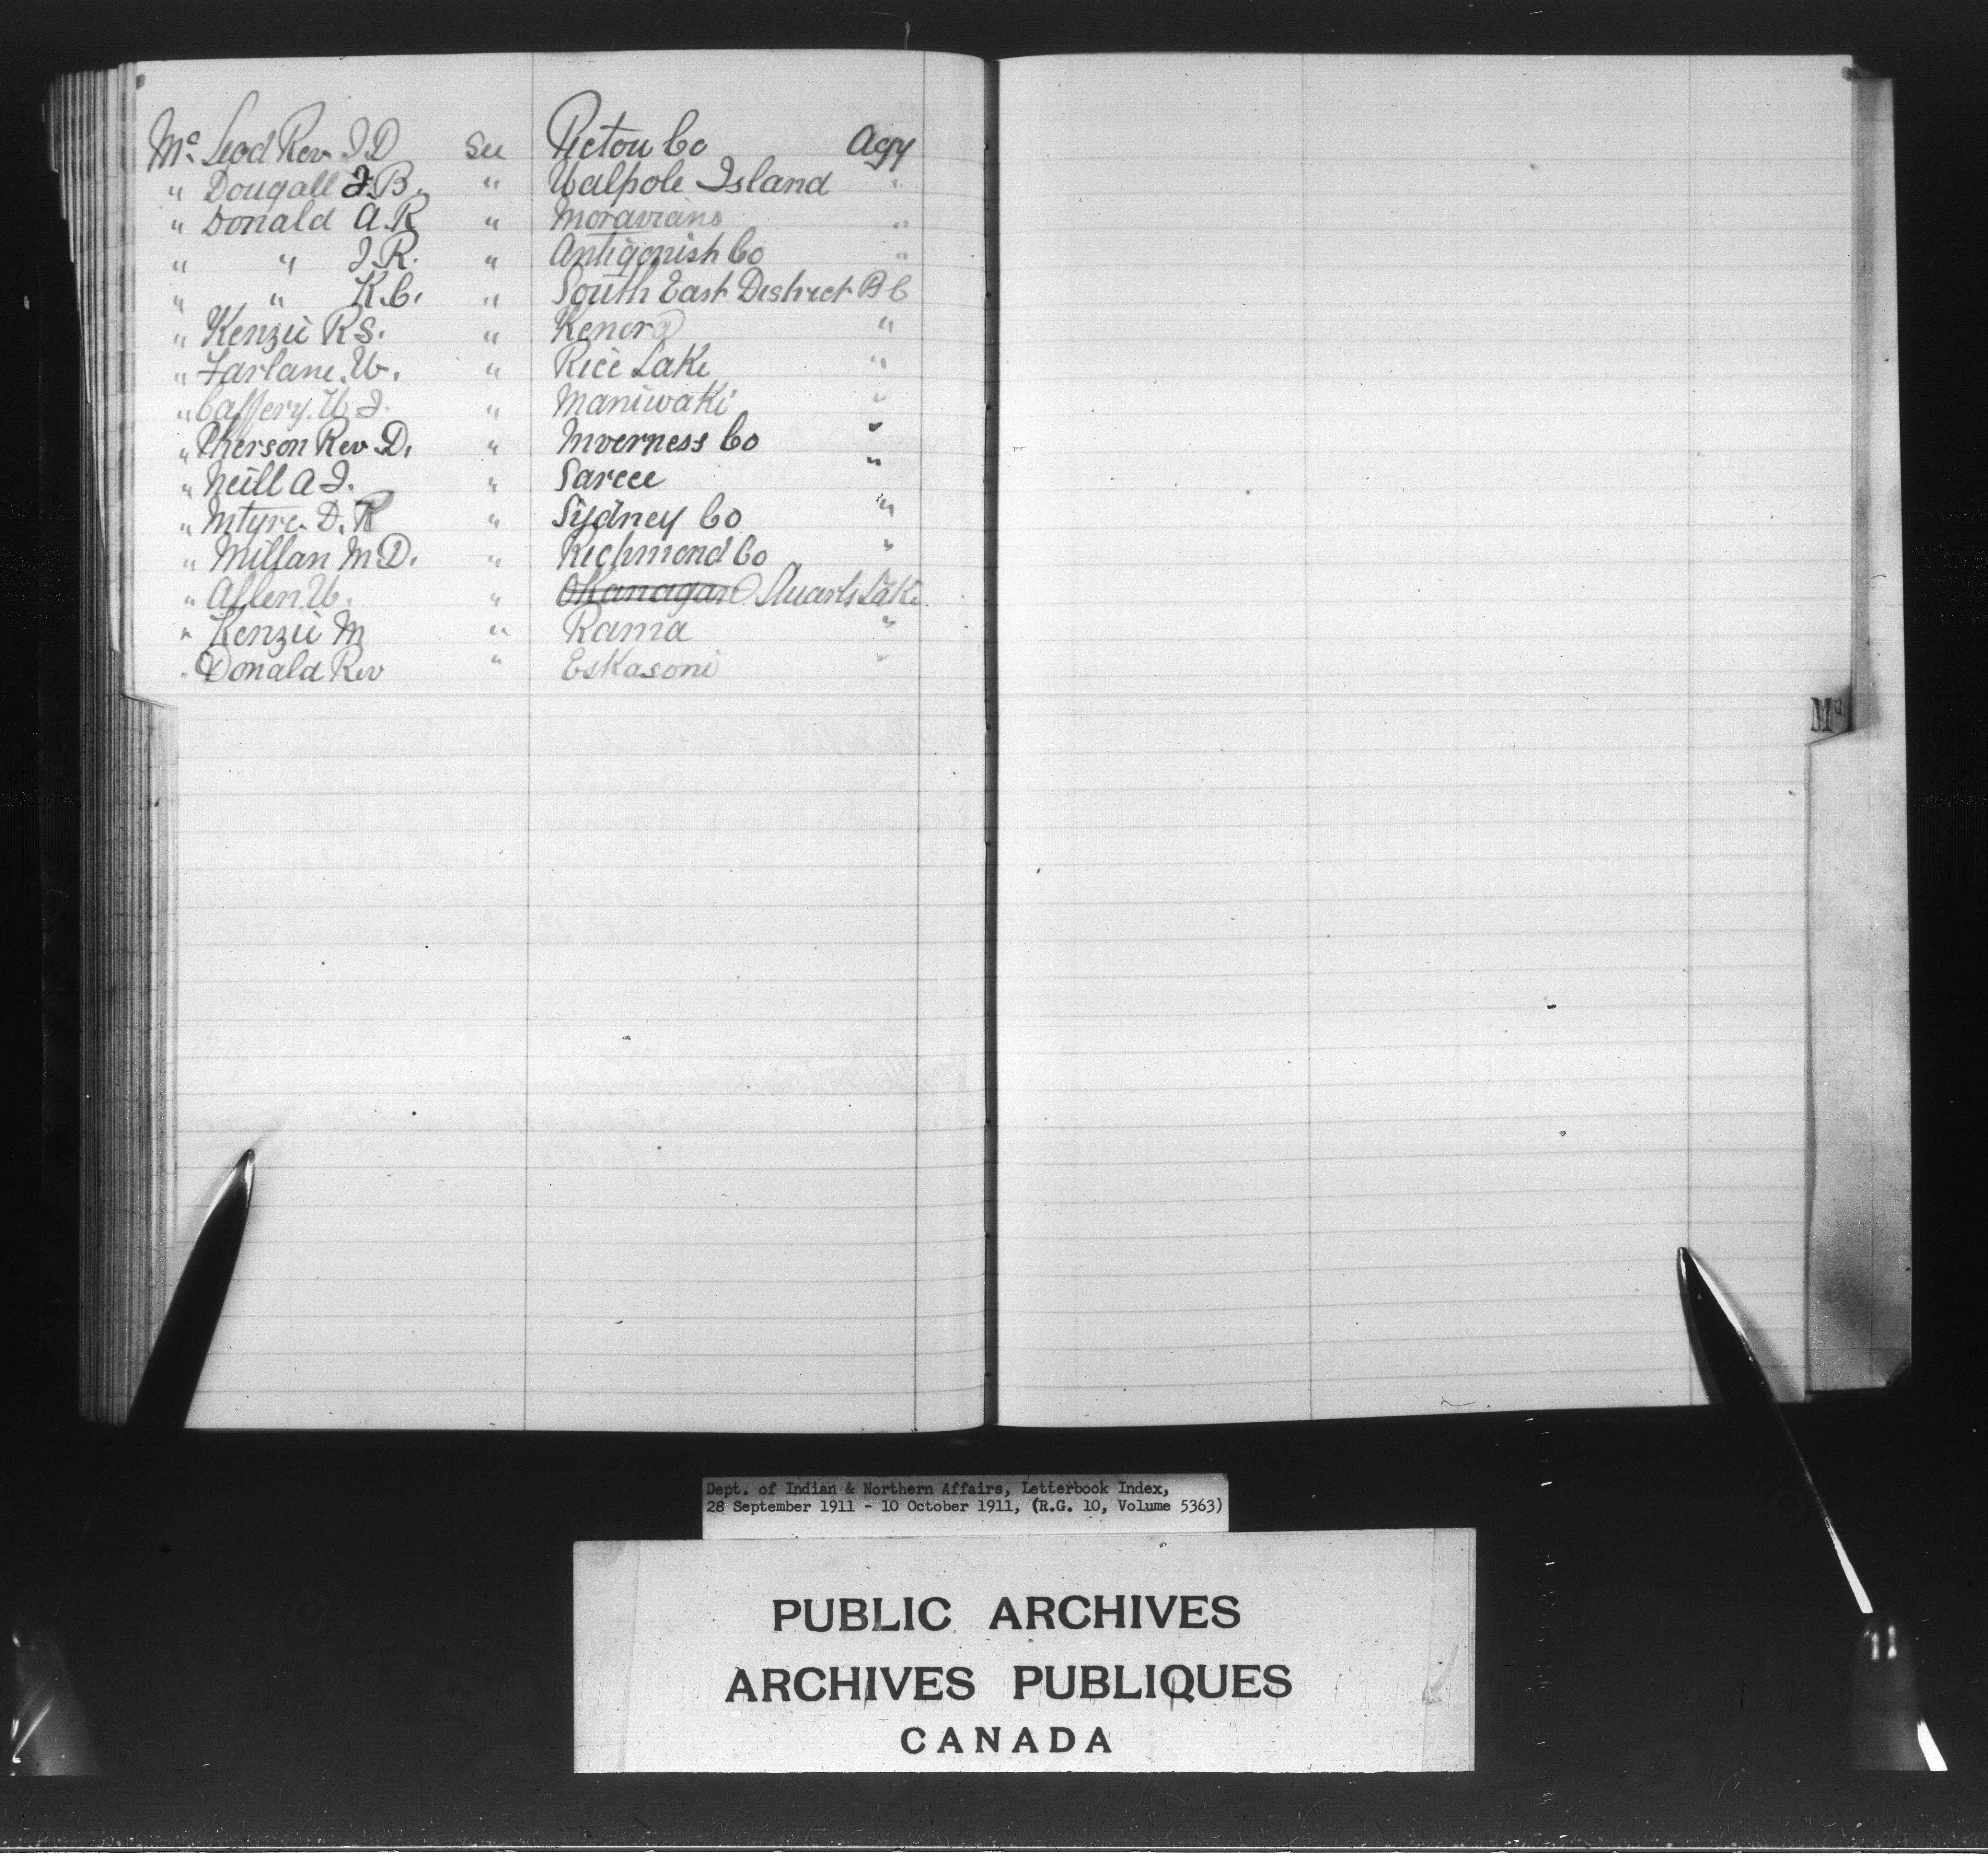 Mc Leod Rev. J D See Pictou Co Agy
" Dougall J. B. " Walpole Island "
" Donald A. R " Moravians "
" " J. R. " Antigonish Co "
" " K. C. " South East District B C
" Kenzie R S. " Kenora "
" Farlane. W. " Rice Lake "
" Caffery. W J. " Maniwaki "
" Pherson Rev D. " Inverness Co "
" Neill A J. " Sarcee "
" Intyre D. K " Sydney Co "
" Millan M D. " Richmond Co "
" Allen W. " Okanagan Stuarts Lake
" Kenzie M " Rama "
" Donald Rev " Eskasoni "
Mc
Dept. of Indian & Northern Affairs, Letterbook Index,
28 September 1911 - 10 October 1911, (R.G. 10, Volume 5363)
PUBLIC ARCHIVES
ARCHIVES PUBLIQUES
CANADA